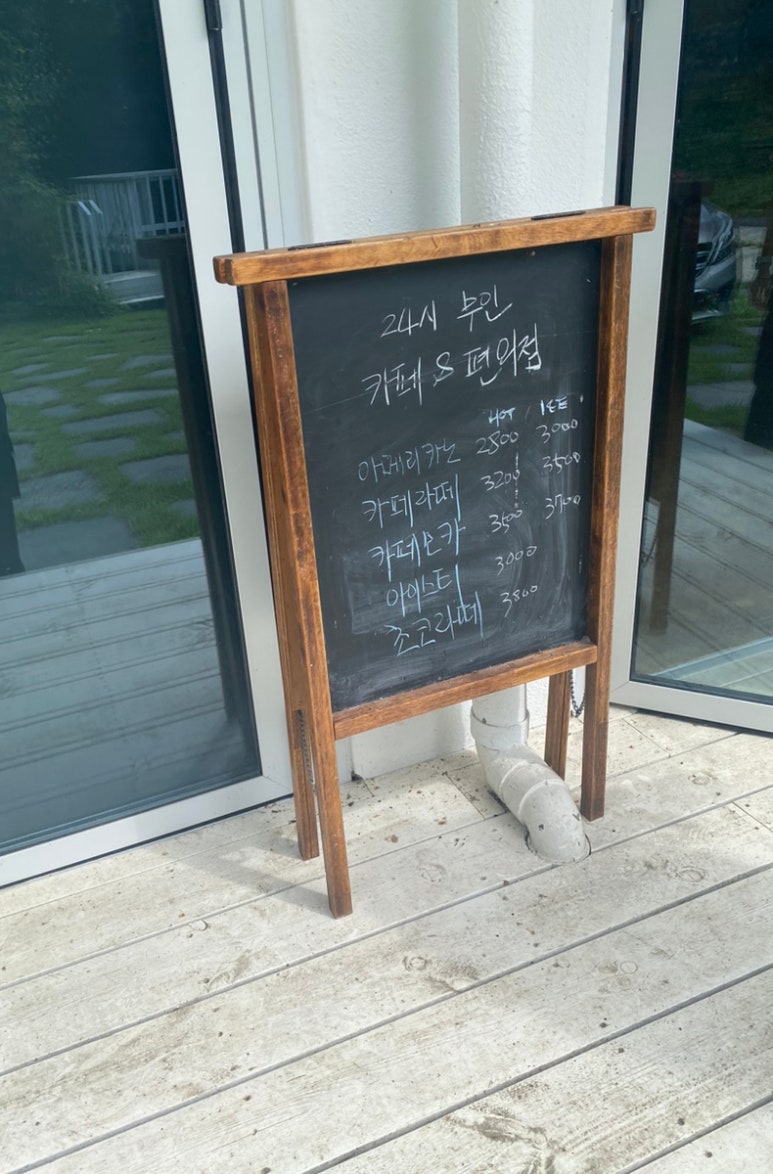 24시 무인
카페 & 편의점
HOT / ICE
아메리카노 2800 3000
카페라떼 3200 3500
카페모카 3500 3700
아이스티 3000
초코라떼 3800